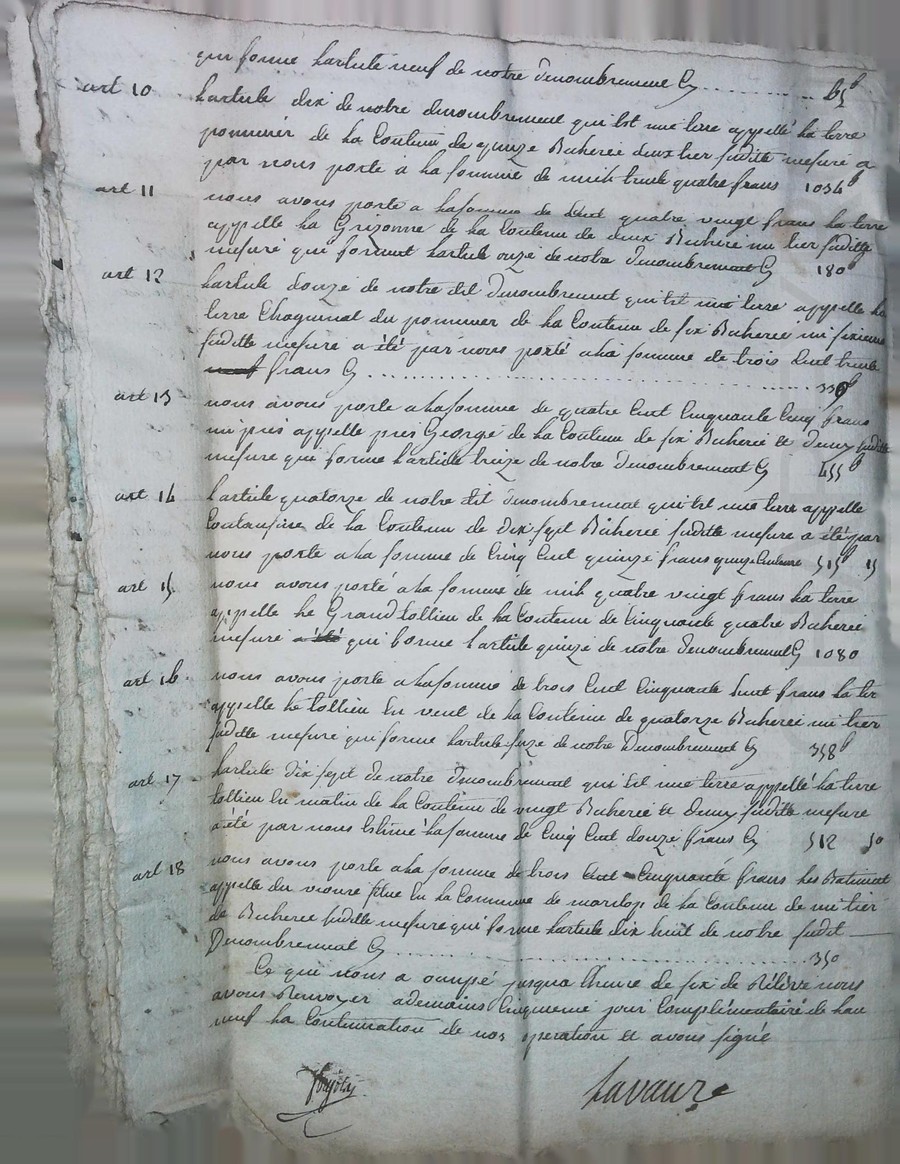 qui forme larticle neuf de notre denombrement Cy .......... 65#
art 10 larticle dix de notre denombrement qui est une terre appellé la terre
pommier de la Contenue de quinze Bicherée deux tier suditte mesure a
par nous porté a la somme de mille trente quatre frans 1034#
art 11 nous avons porté a la somme de Cent quatre vingt frans la terre
appellé la Grizonne de la Contenue de deux Bicherée un tier suditte
mesure qui formont larticle onze de notre denombrement Cy 180#
art 12 larticle douze de notre dit denombrement qui est une terre appellé la
terre Chagunat du pommier de la Contenue de six Bicherée un sixieme
suditte mesure a été par nous porté a la somme de trois Cent trente
frans Cy .......... 330#
art 13 nous avons porté a la somme de quatre Cent Cinquante Cinq frans
un prés appellé prés George de la Contenue de six Bicherée et demy suditte
mesure qui forme larticle treize de notre denombrement Cy 455#
art 14 larticle quatorze de notre dit denombrement qui est une terre appellé
de la Contenue de dix sept Bicherée suditte mesure a été par
nous porté a la somme de Cinq Cent quinze frans quinze Centime 515# 15
art 15 nous avons porté a la somme de mil quatre vingt frans la terre
appellé le Grand tollieu de la Contenue de Cinquante quatre Bicherée
mesure a été qui forme larticle quinze de notre denombrement Cy 1080
art 16 nous avons porté a la somme de trois Cent Cinquante huit frans la ter
appellé le tollieu en vent de la Contenue de quatorze Bicherée un tier
suditte mesure qui forme larticle seize de notre Denombrement Cy 358#
art 17 larticle dix sept de notre denombrement qui est une terre appellé la terre
tollieu en matin de la Contenue de vingt Bicherée et demy suditte mesure
a été par nous Estimé la somme de Cinq Cent douze frans Cy 512 50
art 18 nous avons porté a la somme de trois Cent Cinquante frans les Batiment
appellé du vioure situé en la Commune de de la Contenue de un tier
de Bicherée suditte mesure qui forme larticle dix huit de notre sudit
Denombrement Cy .......... 350
Ce qui nous a ocupé jusqua lheure de six de Rélevé nous
avons Renvoyer a demains Cinquieme jour Complémentaire de lan
neuf la Continuation de nos operation et avons signé
Lavaure